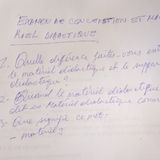 EXAMEN DE CONCEPTION DE MA
RIEL DIDACTIQUE
1. Quelle différence faites-vous ent
le matériel didactique et le suppor
didactique ?
2. Pourquoi le matériel didactique
dit-on Matériel didactique
3. Que signifie ce pvt :
- matériel ?